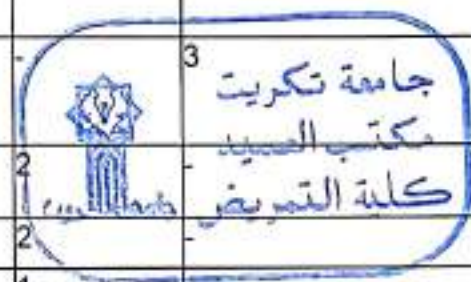 3
جامعة تكريت
مكتب العميد
2
كلية التمريض
2